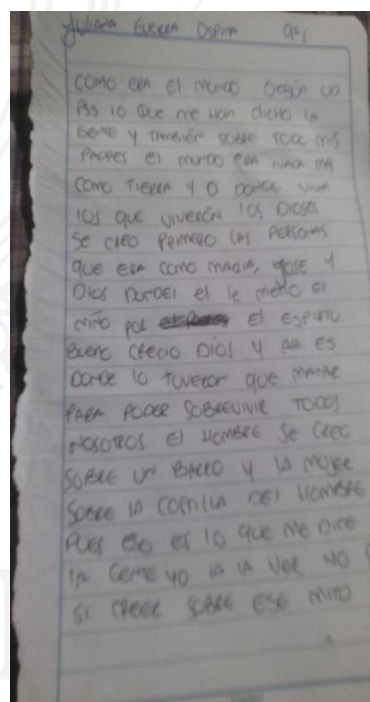 Juliana Guerra Ospina 9-1
COMO ERA El MUNDO Según UD
PSS lO Que me HAN DicHO lA
GENTE Y TAMBIÉN SOBRE TODO MIS
PADRES El MUNDO ERA NADA MAS
COMO TIERRA Y O DONDE VIVIA
lOS QUE VIVERÓN lOS DIOSES
Se CREO PRIMERO LAS PERSONAS
QUE ERA COMO MARIA, JOSE Y
DIOS DONDEl el le metio El
NIÑO POR El ESPIRITU.
BUENO CRECIO DIOS Y AHI ES
DONDE lO TUVERON QUE MATAR
PARA PODER SOBREVIVIR TODOS
NOSOTROS El HOMBRE SE CREO
SOBRE UN BARRO Y lA MUJER
SOBRE lA COSTILLA DEl HOMBRE
PUES ESO ES lO QUE ME DICE
lA GENTE YO A lA VEZ NO
SI CREER SOBRE ESE MITO